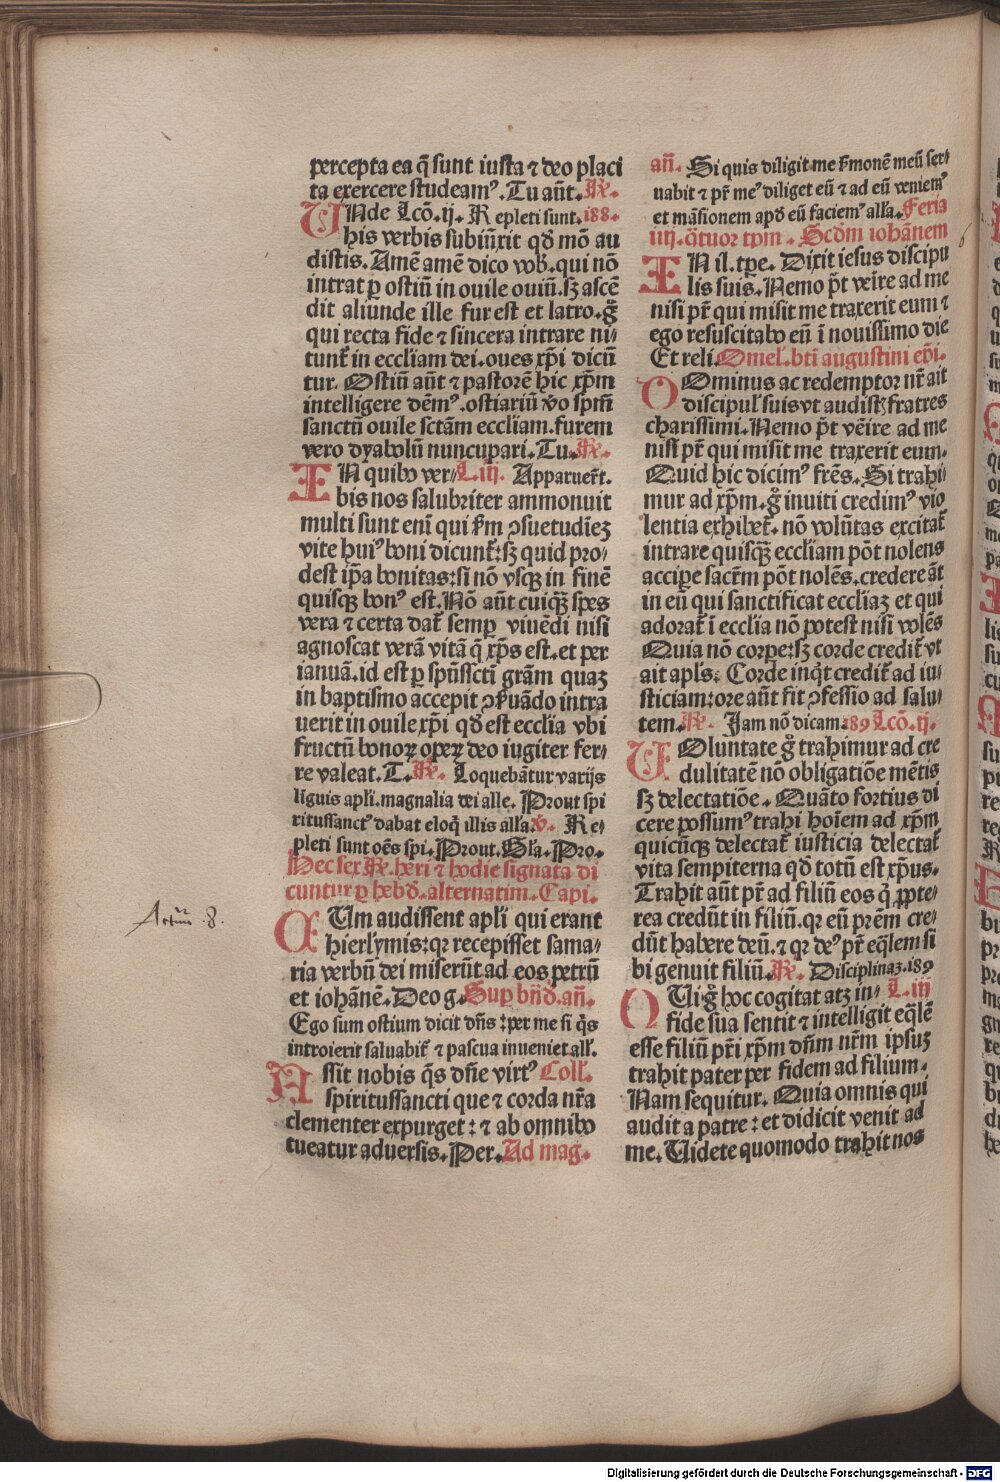 percepta ea q̃ sunt iusta ⁊ deo placi
ta exercere studeamꝰ. Tu aũt. R̃.
Vnde Lcõ. ij. R epleti sunt. i88.
his verbis subiũxit qd̃ mõ au
distis. Amẽ amẽ dico vob̃. qui nõ
intrat ꝑ ostiũ in ouile ouiũ. sꝫ ascẽ
dit aliunde ille fur est et latro. g̃
qui recta fide ⁊ sincera intrare ni/
tunt̃ in eccliam dei. oues xp̃i dicũ
tur. Ostiũ aũt ⁊ pastorẽ hic xp̃m
intelligere dẽmꝰ. ostiariũ v̾o spm̃
sanctũ ouile sctãm eccliam. furem
vero dyabolũ nuncupari. Tu. R̃.
IN quibꝰ ver/ L. iij. Apparuer̃t.
bis nos salubriter ammonuit
multi sunt eni qui ẜm ꝯsuetudieꝫ
vite huiꝰ boni dicunt̃: sꝫ quid pro/
dest ip̃a bonitas: si nõ vsqꝫ in finẽ
quisqꝫ bonꝰ est. Nõ aũt cuiqꝫ̃ spes
vera ⁊ certa dat̃ semꝑ viuẽdi nisi
agnoscat verã vitã q̃ xp̃s est. et per
ianuã. id est ꝑ spũssctĩ grãm quaꝫ
in baptismo accepit ꝯẜuãdo intra
uerit in ouile xp̃i qd̃ est ecclia vbi
fructũ bonoꝝ opeꝝ deo iugiter fer/
re valeat. T. R̃. Loquebãtur varijs
liguis apl̃i. magnalia dei alle. Prout spi
ritussanctꝰ dabat eloq̃ illis all̃a. v̾. Re/
pleti sunt oẽs spi. Prout. Gl̃a. Pro.
Hec sex R̃. heri ⁊ hodie signata di
cuntur ꝑ hebd̃. alternatim. Capi.
CUm audissent apl̃i qui erant
hierl̃ymis: qꝛ recepisset sama/
ria verbũ dei miserũt ad eos petrũ
et iohãnẽ. Deo g. Sup bñd̃. añ.
Ego sum ostium dicit dñs: per me si q̃s
introierit saluabit̃ ⁊ pascua inueniet all̃.
Assit nobis q̃s dñe virtꝰ Coll̃.
spiritussancti que ⁊ corda nr̃a
clementer expurget: ⁊ ab omnibꝰ
tueatur aduersis. Per. Ad mag.
Actuu .8.
añ. Si quis diligit me ẜmonẽ meũ ser/
uabit ⁊ pr̃ meꝰ diliget eũ ⁊ ad eũ veniemꝰ
et mãsionem apd̃ eũ faciemꝰ all̃a. Feria
iiij. q̃tuor tpm̃. Scd̃m iohãnem
IN il. tpe. Dixit iesus discipu
lis suis. Nemo põt veĩre ad me
nisi pr̃ qui misit me traxerit eum ⁊
ego resuscitabo eũ ĩ nouissimo die
Et reli. Omel̃. bt̃i augustini ep̃i.
DOminus ac redemptor nr̃ ait
discipul̃ suis vt audistꝫ fratres
charissimi. Nemo põt veĩre ad me
nisi pr̃ qui misit me traxerit eum.
Quid hic dicimꝰ frẽs. Si trahi/
mur ad xp̃m. g̃ inuiti credimꝰ vio
lentia exhibet̃. nõ volũtas excitat̃
intrare quisqꝫ̃ eccliam põt nolens
accipe sacr̃m põt nolẽs. credere ãt
in eũ qui sanctificat eccliaꝫ et qui
adorat̃ ĩ ecclia nõ potest nisi volẽs
Quia nõ corpe: sꝫ corde credit̃ vt
ait apl̃s. Corde inq̃t credit̃ ad iu/
sticiam: ore aũt fit ꝯfessio ad salu/
tem. R̃. Jam nõ dicam. i89 Lcõ. ij.
VOluntate g̃ trahimur ad cre
dulitatẽ nõ obligatiõe mẽtis
sꝫ delectatiõe. Quãto fortius di
cere possumꝰ trahi hoĩem ad xp̃m
quicũqꝫ delectat̃ iusticia delectat̃
vita sempiterna qd̃ totũ est xp̃us.
Trahit aũt pr̃ ad filiũ eos q̃ ꝓpte/
rea credũt in filiũ. qꝛ eũ pr̃em cre/
dũt habere deũ. ⁊ qꝛ deꝰ pr̃ eq̃lem si
bi genuit filiũ. R̃. Disciplinaꝫ. i89
QUi g̃ hoc cogitat atꝫ in/ L. iij
fide sua sentit ⁊ intelligit eq̃lẽ
esse filiũ pr̃i xp̃m dñm nr̃m ipsuꝫ
trahit pater per fidem ad filium.
Nam sequitur. Quia omnis qui
audit a patre: et didicit venit ad
me. Uidete quomodo trahit nos
Digitalisierung gefördert durch die Deutsche Forschungsgemeinschaft - DFG